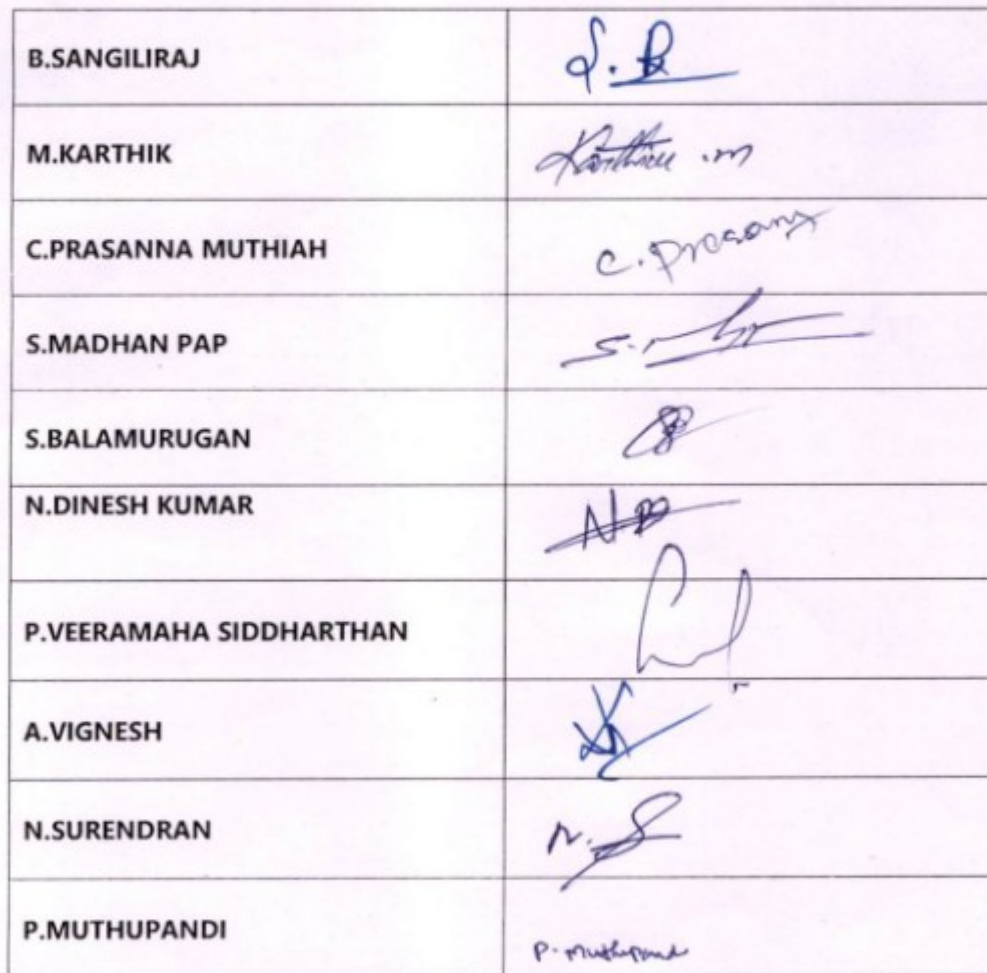 B.SANGILIRAJ S.B
M.KARTHIK Karthick .m
C.PRASANNA MUTHIAH C. Prasanna
S.MADHAN PAP S.
S.BALAMURUGAN
N.DINESH KUMAR ND
P.VEERAMAHA SIDDHARTHAN
A.VIGNESH
N.SURENDRAN N.S
P.MUTHUPANDI P. Muthupandi